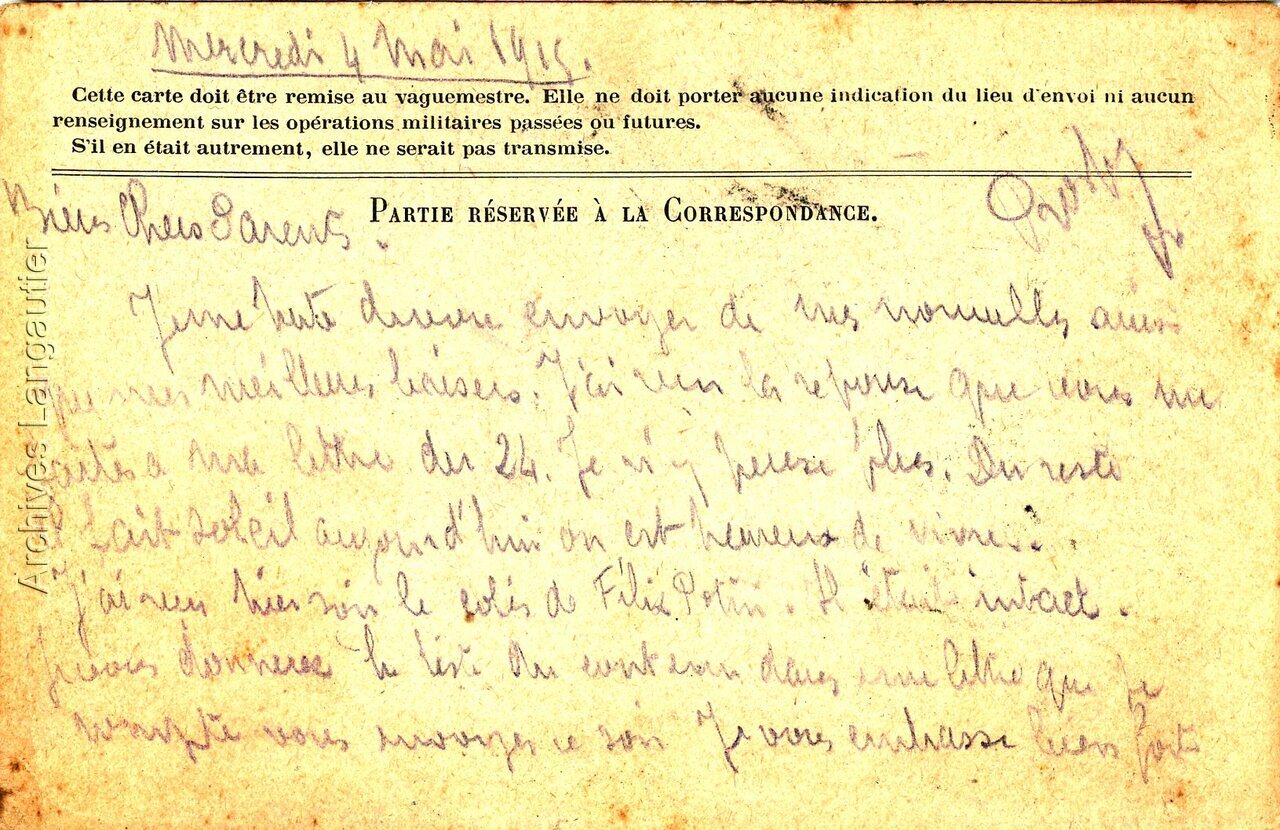 Mercredi 4 Mai 1915.
Cette carte doit être remise au vaguemestre. Elle ne doit porter aucune indication du lieu d'envoi ni aucun
renseignement sur les opérations militaires passées ou futures.
S'il en était autrement, elle ne sera pas transmise.
PARTIE RÉSERVÉE À LA CORRESPONDANCE.
Biens Chers Parents.
Je me hate de vous envoyer de mes nouvelles ainsi
que mes meilleurs baisers. J'ai reçu la reponse que vous me
faites a ma lettre du 24. Je n'y pense plus. Du reste
il fait soleil aujourd'hui on est heureux de vivre.
J'ai reçu hier soir le colis de Félix Potin. Il était intact.
Je vous donnerai la liste du contenu dans une lettre que je
compte vous envoyer ce soir Je vous embrasse bien fort
Archives Langautier